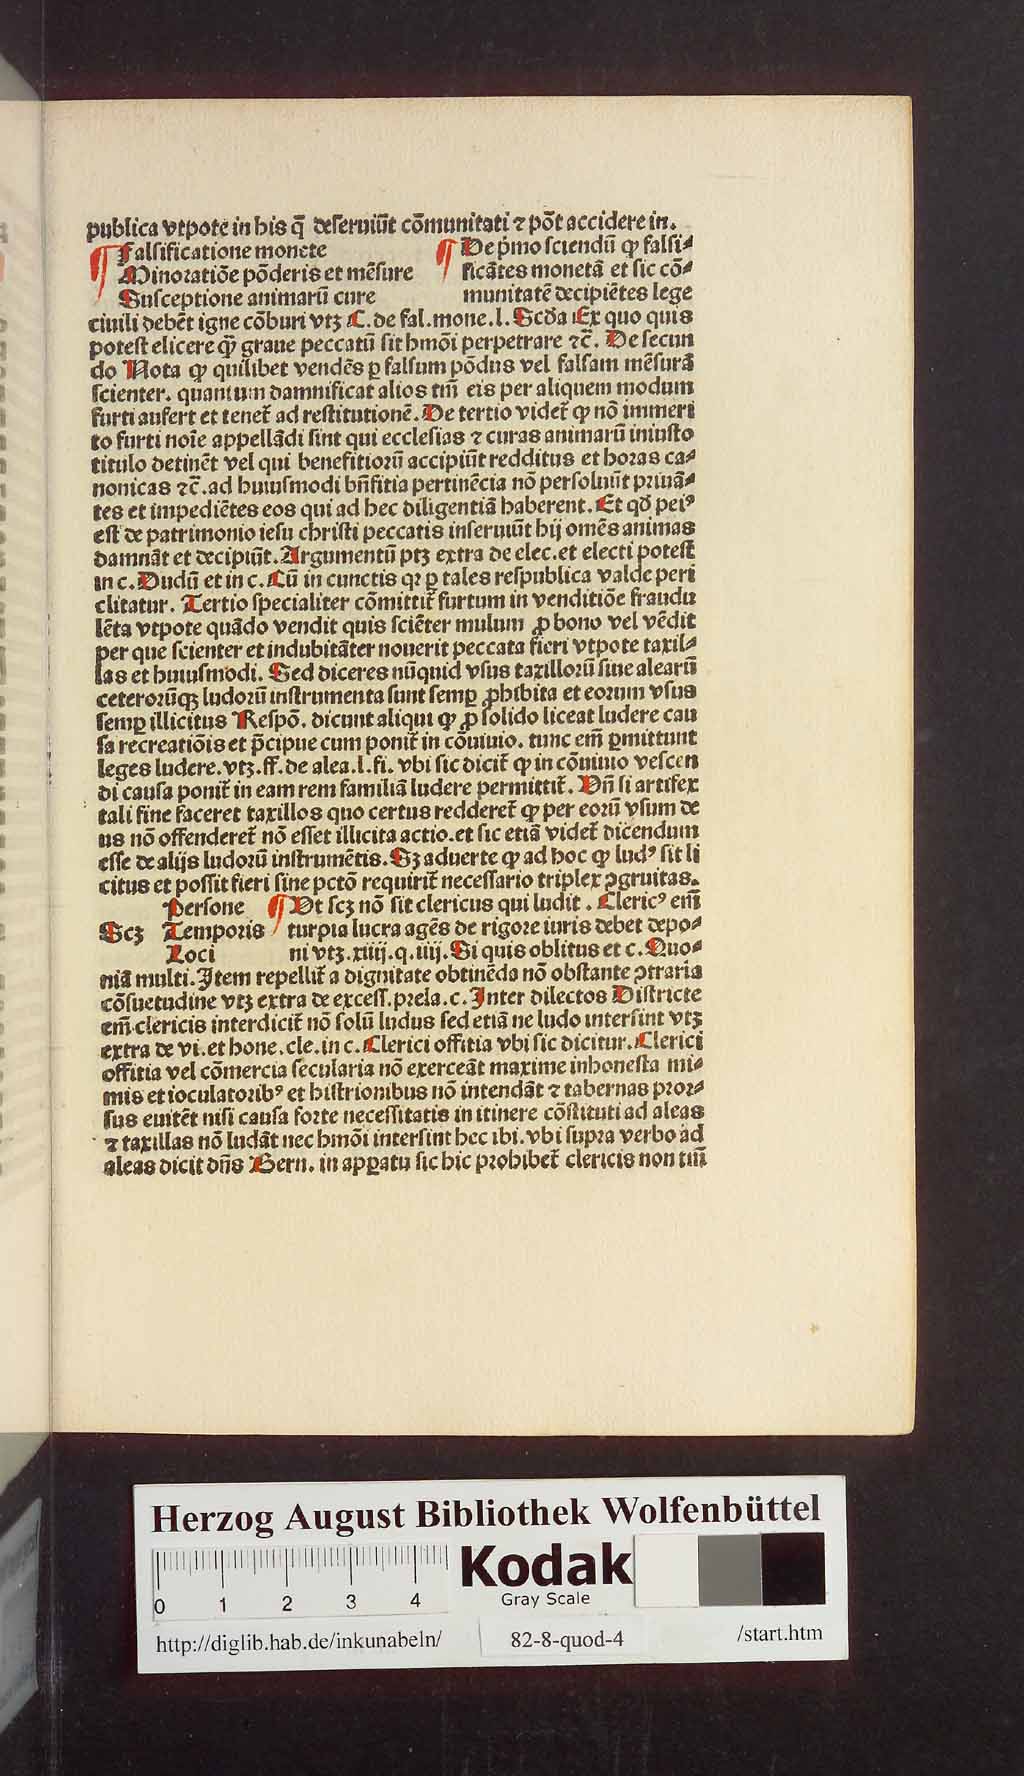 publica vtpote in his q̄ deſeruiūt cōmunitati ⁊ pōt accidere in.
¶ Falſificatione monete
Minoratiōe pōderis et mēſure
Suſceptione animarū cure
¶ De p̄mo ſciendū ꝙ falſi⸗
ficātes monetā et ſic cō⸗
munitatē decipiētes lege
ciuili debēt igne cōburi vtꝫ C. de fal. mone. l. Scd̄a Ex quo quis
poteſt elicere ꝙ̄ graue peccatū ſit hmōi perpetrare ⁊c̄. De ſecun
do Nota ꝙ quilibet vendēs ꝑ falſum pōdus vel falſam mēſurā
ſcienter. quantum damnificat alios tm̄ eis per aliquem modum
furti aufert et tenet̄ ad reſtitutionē. De tertio videt̄ ꝙ nō immeri
to furti noīe appellādi ſint qui eccleſias ⁊ curas animarū iniuſto
titulo detinēt vel qui benefitiorū accipiūt redditus et horas ca⸗
nonicas ⁊c̄. ad huiuſmodi bn̄fitia pertinēcia nō perſoluūt priuā⸗
tes et impediētes eos qui ad hec diligentiā haberent. Et qd̄ peiꝰ
eſt de patrimonio ieſu chriſti peccatis inſeruiūt hij omēs animas
damnāt et decipiūt. Argumentū ptꝫ extra de elec. et electi poteſt
in c. Dudū et in c. Cū in cunctis qꝛ ꝑ tales reſpublica valde peri
clitatur. Tertio ſpecialiter cōmittit̄ furtum in venditiōe fraudu
lēta vtpote quādo vendit quis ſciēter mulum ꝓ bono vel vēdit
per que ſcienter et indubitāter nouerit peccata fieri vtpote taxil⸗
las et huiuſmodi. Sed diceres nūquid vſus taxillorū ſiue alearū
ceterorūqꝫ ludorū inſtrumenta ſunt ſemꝑ ꝓhibita et eorum vſus
ſemꝑ illicitus Reſpō. dicunt aliqui ꝙ ꝓ ſolido liceat ludere cau
ſa recreatiōis et p̄cipue cum ponit̄ in cōuiuio. tunc em̄ ꝑmittunt
leges ludere. vtꝫ. ff. de alea. l. fi. vbi ſic dicit̄ ꝙ in cōuiuio veſcen
di cauſa ponit̄ in eam rem familiā ludere permittit̄. Vn̄ ſi artifex
tali fine faceret taxillos quo certus redderet̄ ꝙ per eorū vſum de
us nō offenderet̄ nō eſſet illicita actio. et ſic etiā videt̄ dicendum
eſſe de alijs ludorū inſtrumētis. Sꝫ aduerte ꝙ ad hoc ꝙ ludꝰ ſit li
citus et poſſit fieri ſine pctō requirit̄ neceſſario triplex ꝯgruitas.
Perſone
Scꝫ Temporis
Loci
¶ Vt ſcꝫ nō ſit clericus qui ludit. Clericꝰ em̄
turpia lucra agēs de rigore iuris debet depo⸗
ni vtꝫ. xiiij. q. iiij. Si quis oblitus et c. Quo⸗
niā multi. Item repellit̄ a dignitate obtinēda nō obſtante ꝯtraria
cōſuetudine vtꝫ extra de exceſſ. prela. c. Inter dilectos Diſtricte
em̄ clericis interdicit̄ nō ſolū ludus ſed etiā ne ludo interſint vtꝫ
extra de vi. et hone. cle. in c. Clerici offitia vbi ſic dicitur. Clerici
offitia vel cōmercia ſecularia nō exerceāt maxime inhoneſta mi⸗
mis et ioculatoribꝰ et hiſtrionibus nō intendāt ⁊ tabernas pror⸗
ſus euitēt niſi cauſa forte neceſſitatis in itinere cōſtituti ad aleas
⁊ taxillas nō ludāt nec hmōi interſint hec ibi. vbi ſupra verbo ad
aleas dicit dn̄s Bern. in apꝑatu ſic hic prohibet̄ clericis non tm̄
Herzog August Bibliothek Wolfenbüttel
0 1 2 3 4
Kodak
Gray Scale
http://diglib.hab.de/inkunabeln/ 82-8-quod-4 /start.htm